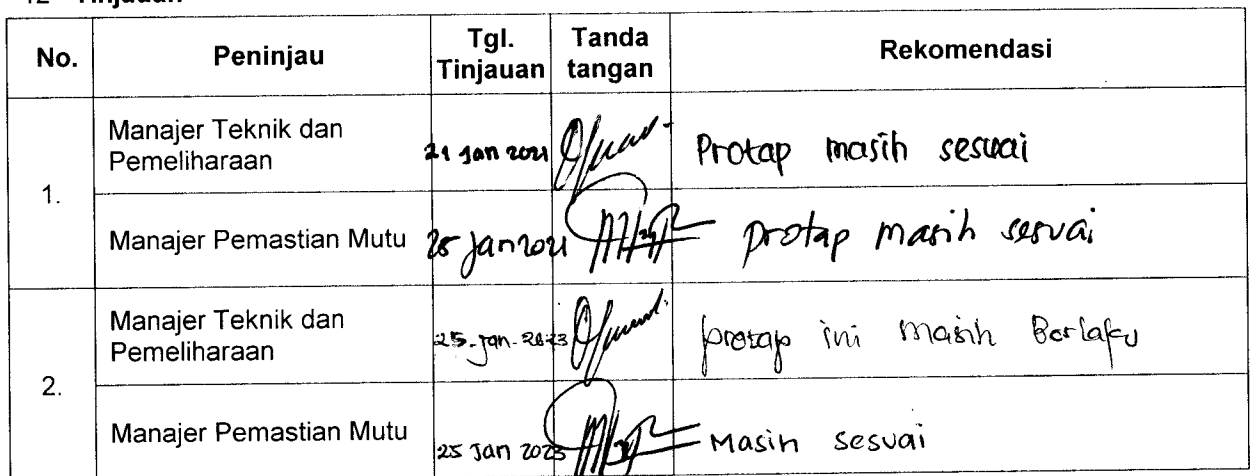 12 Tinjauan
No. Peninjau Tgl. Tinjauan Tanda tangan Rekomendasi
1. Manajer Teknik dan Pemeliharaan 21 Jan 2021 Protap masih sesuai
Manajer Pemastian Mutu 25 Jan 2021 protap masih sesuai
2. Manajer Teknik dan Pemeliharaan 25-Jan-2023 protap ini masih Berlaku
Manajer Pemastian Mutu 25 Jan 2023 Masih sesuai